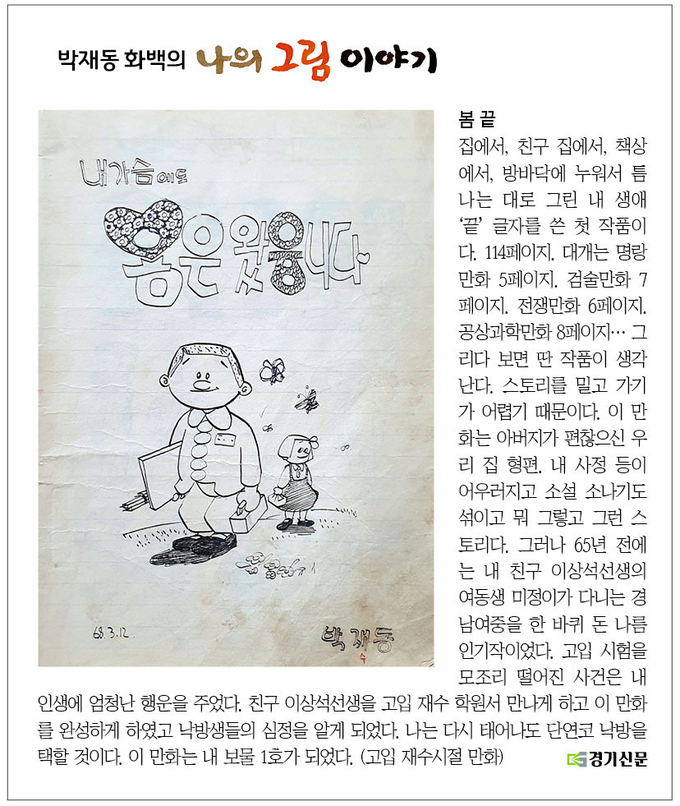 박재동 화백의 나의 그림 이야기
내 가슴에도
봄은 왔읍니다
68.3.12
박재동
수
봄 끝
집에서, 친구 집에서, 책상
에서, 방바닥에 누워서 틈
나는 대로 그린 내 생애
‘끝’ 글자를 쓴 첫 작품이
다. 114페이지. 대개는 명랑
만화 5페이지. 검술만화 7
페이지. 전쟁만화 6페이지.
공상과학만화 8페이지… 그
리다 보면 딴 작품이 생각
난다. 스토리를 밀고 가기
가 어렵기 때문이다. 이 만
화는 아버지가 편찮으신 우
리 집 형편. 내 사정 등이
어우러지고 소설 소나기도
섞이고 뭐 그렇고 그런 스
토리다. 그러나 65년 전에
는 내 친구 이상석선생의
여동생 미정이가 다니는 경
남여중을 한 바퀴 돈 나름
인기작이었다. 고입 시험을
모조리 떨어진 사건은 내
인생에 엄청난 행운을 주었다. 친구 이상석선생을 고입 재수 학원서 만나게 하고 이 만화
를 완성하게 하였고 낙방생들의 심정을 알게 되었다. 나는 다시 태어나도 단연코 낙방을
택할 것이다. 이 만화는 내 보물 1호가 되었다. (고입 재수시절 만화)
경기신문